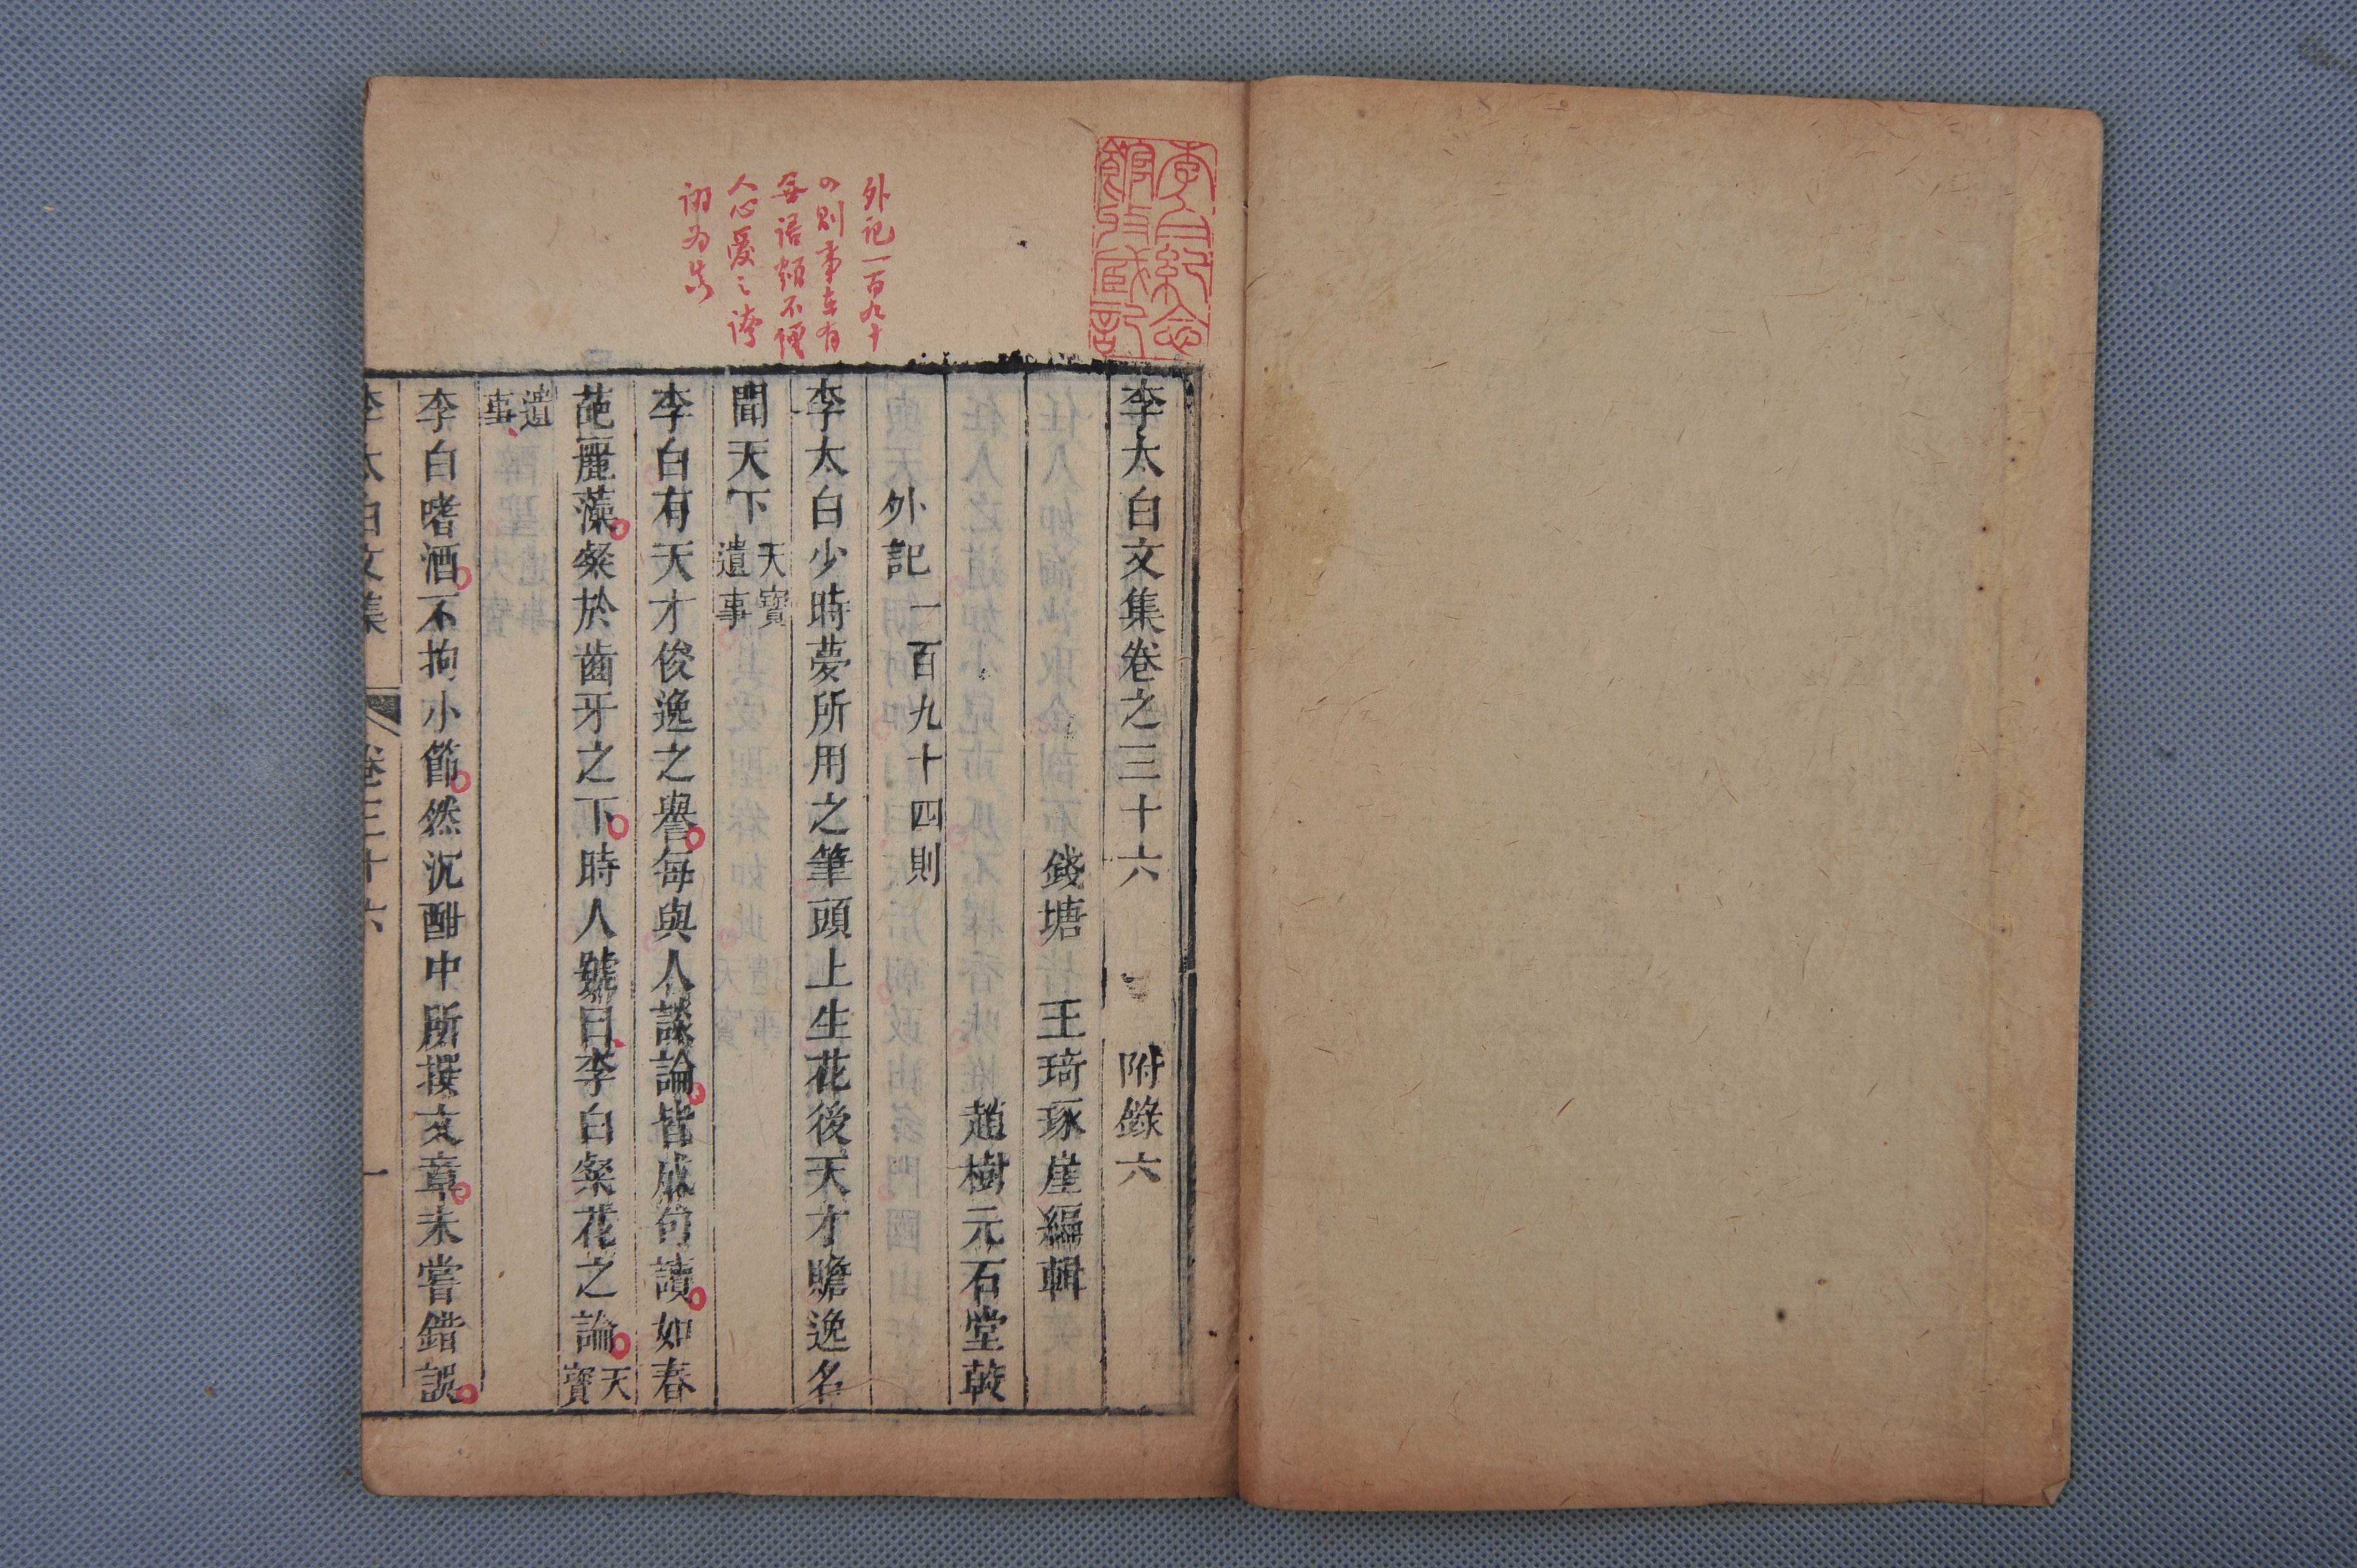 李白紀念
館收藏記
外記一百九十
則事
每語不便
人心愛之誇
詡
李太白文集卷之三十六 附錄六
錢塘 王琦琢崖編輯
趙樹元石堂較
外記 一百九十四則
李太白少時夢所用之筆頭上生花後天才贍逸名
聞天下天寶遺事
李白有天才俊逸之譽每與人談論皆成句讀如春
葩麗藻粲於齒牙之下時人號曰李白粲花之論天寶
遺事
李白嗜酒不拘小節然沉酣中所撰文章未嘗錯誤
李太白文集 卷三十六 一